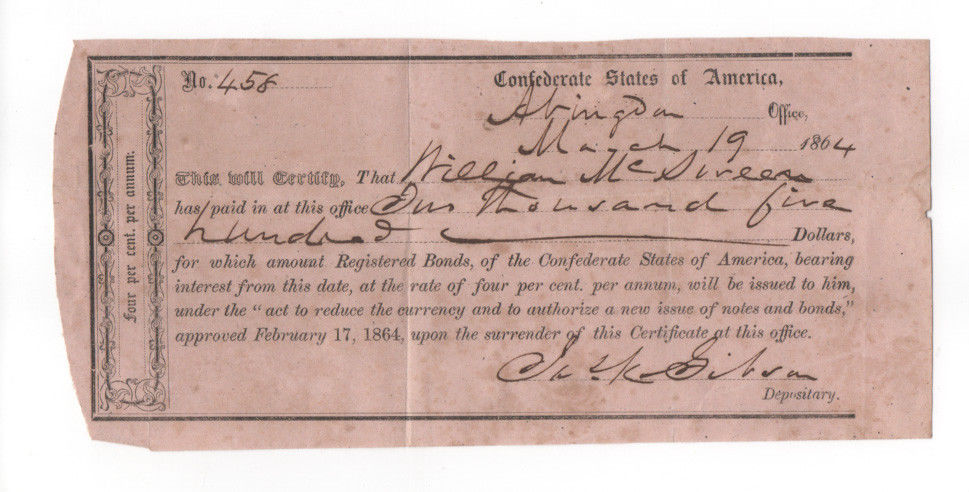 No. 458
Confederate States of America,
Abingdon Office,
March 19 1864
This will Certify, That William McSween
has paid in at this office One Thousand five
hundred Dollars,
for which amount Registered Bonds, of the Confederate States of America, bearing
interest from this date, at the rate of four per cent. per annum, will be issued to him,
under the "act to reduce the currency and to authorize a new issue of notes and bonds,"
approved February 17, 1864, upon the surrender of this Certificate at this office.
Jas. K. Gibson
Depositary.
Four per cent. per annum.